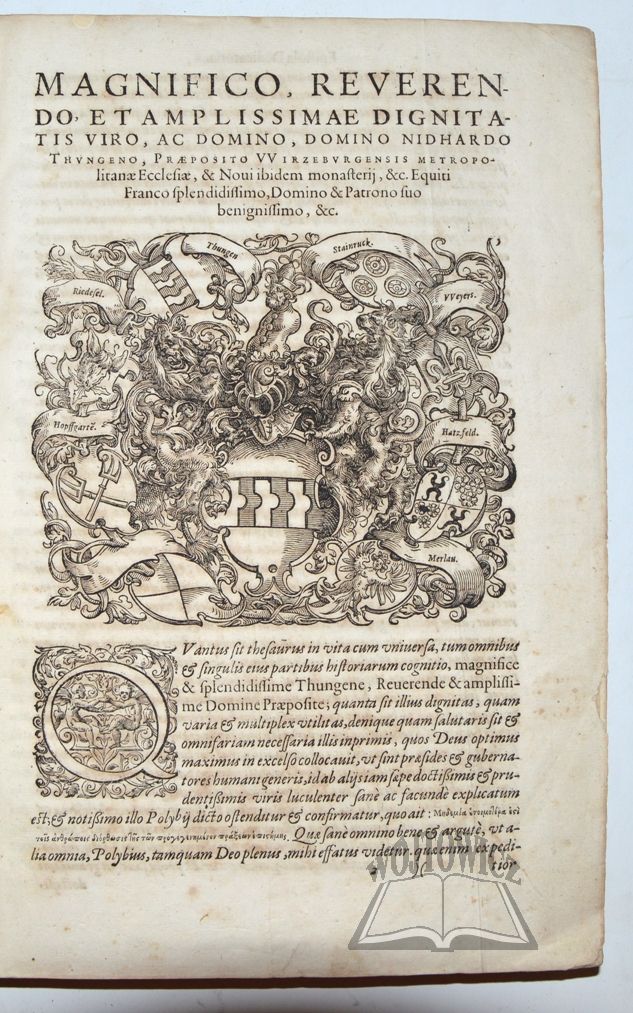 MAGNIFICO, REVEREN-
DO, ET AMPLISSIMAE DIGNITA-
TIS VIRO, AC DOMINO, DOMINO NIDHARDO
THVNGENO, PRÆPOSITO VVIRZEBVRGENSIS METROPO-
litanæ Ecclesiæ, & Noui ibidem monasterij, &c. Equiti
Franco splendidissimo, Domino & Patrono suo
benignissimo, &c.
Thungen
Stainruck.
Riedesel.
VVeyers.
Hopffgartē.
Hatzfeld.
Merlau.
QVantus sit thesaurus in vita cum vniuersa, tum omnibus
& singulis eius partibus historiarum cognitio, magnifice
& splendidissime Thungene, Reuerende & amplissi-
me Domine Præposite; quanta sit illius dignitas, quam
varia & multiplex vtilitas, denique quam salutaris sit &
omnifariam necessaria illis inprimis, quos Deus optimus
maximus in excelso collocauit, vt sint præsides & guberna-
tores humani generis, id ab alijs iam sæpe doctißimis & pru-
dentißimis viris luculenter sanè ac facundè explicatum
est; & notißimo illo Polybij dicto ostenditur & confirmatur, quo ait: Μηδεμία ἑτοιμοτέρα ἐςὶ
τοῖς ἀνθρώποις διόρθωσις τῆς τῶν προγεγενημένων πράξεων ἐπιςήμης. Quæ sanè omnino bene & argutè, vt a-
lia omnia, Polybius, tamquam Deo plenus, mihi effatus videtur. quæ enim expedi-
tior
WÓJTOWICZ